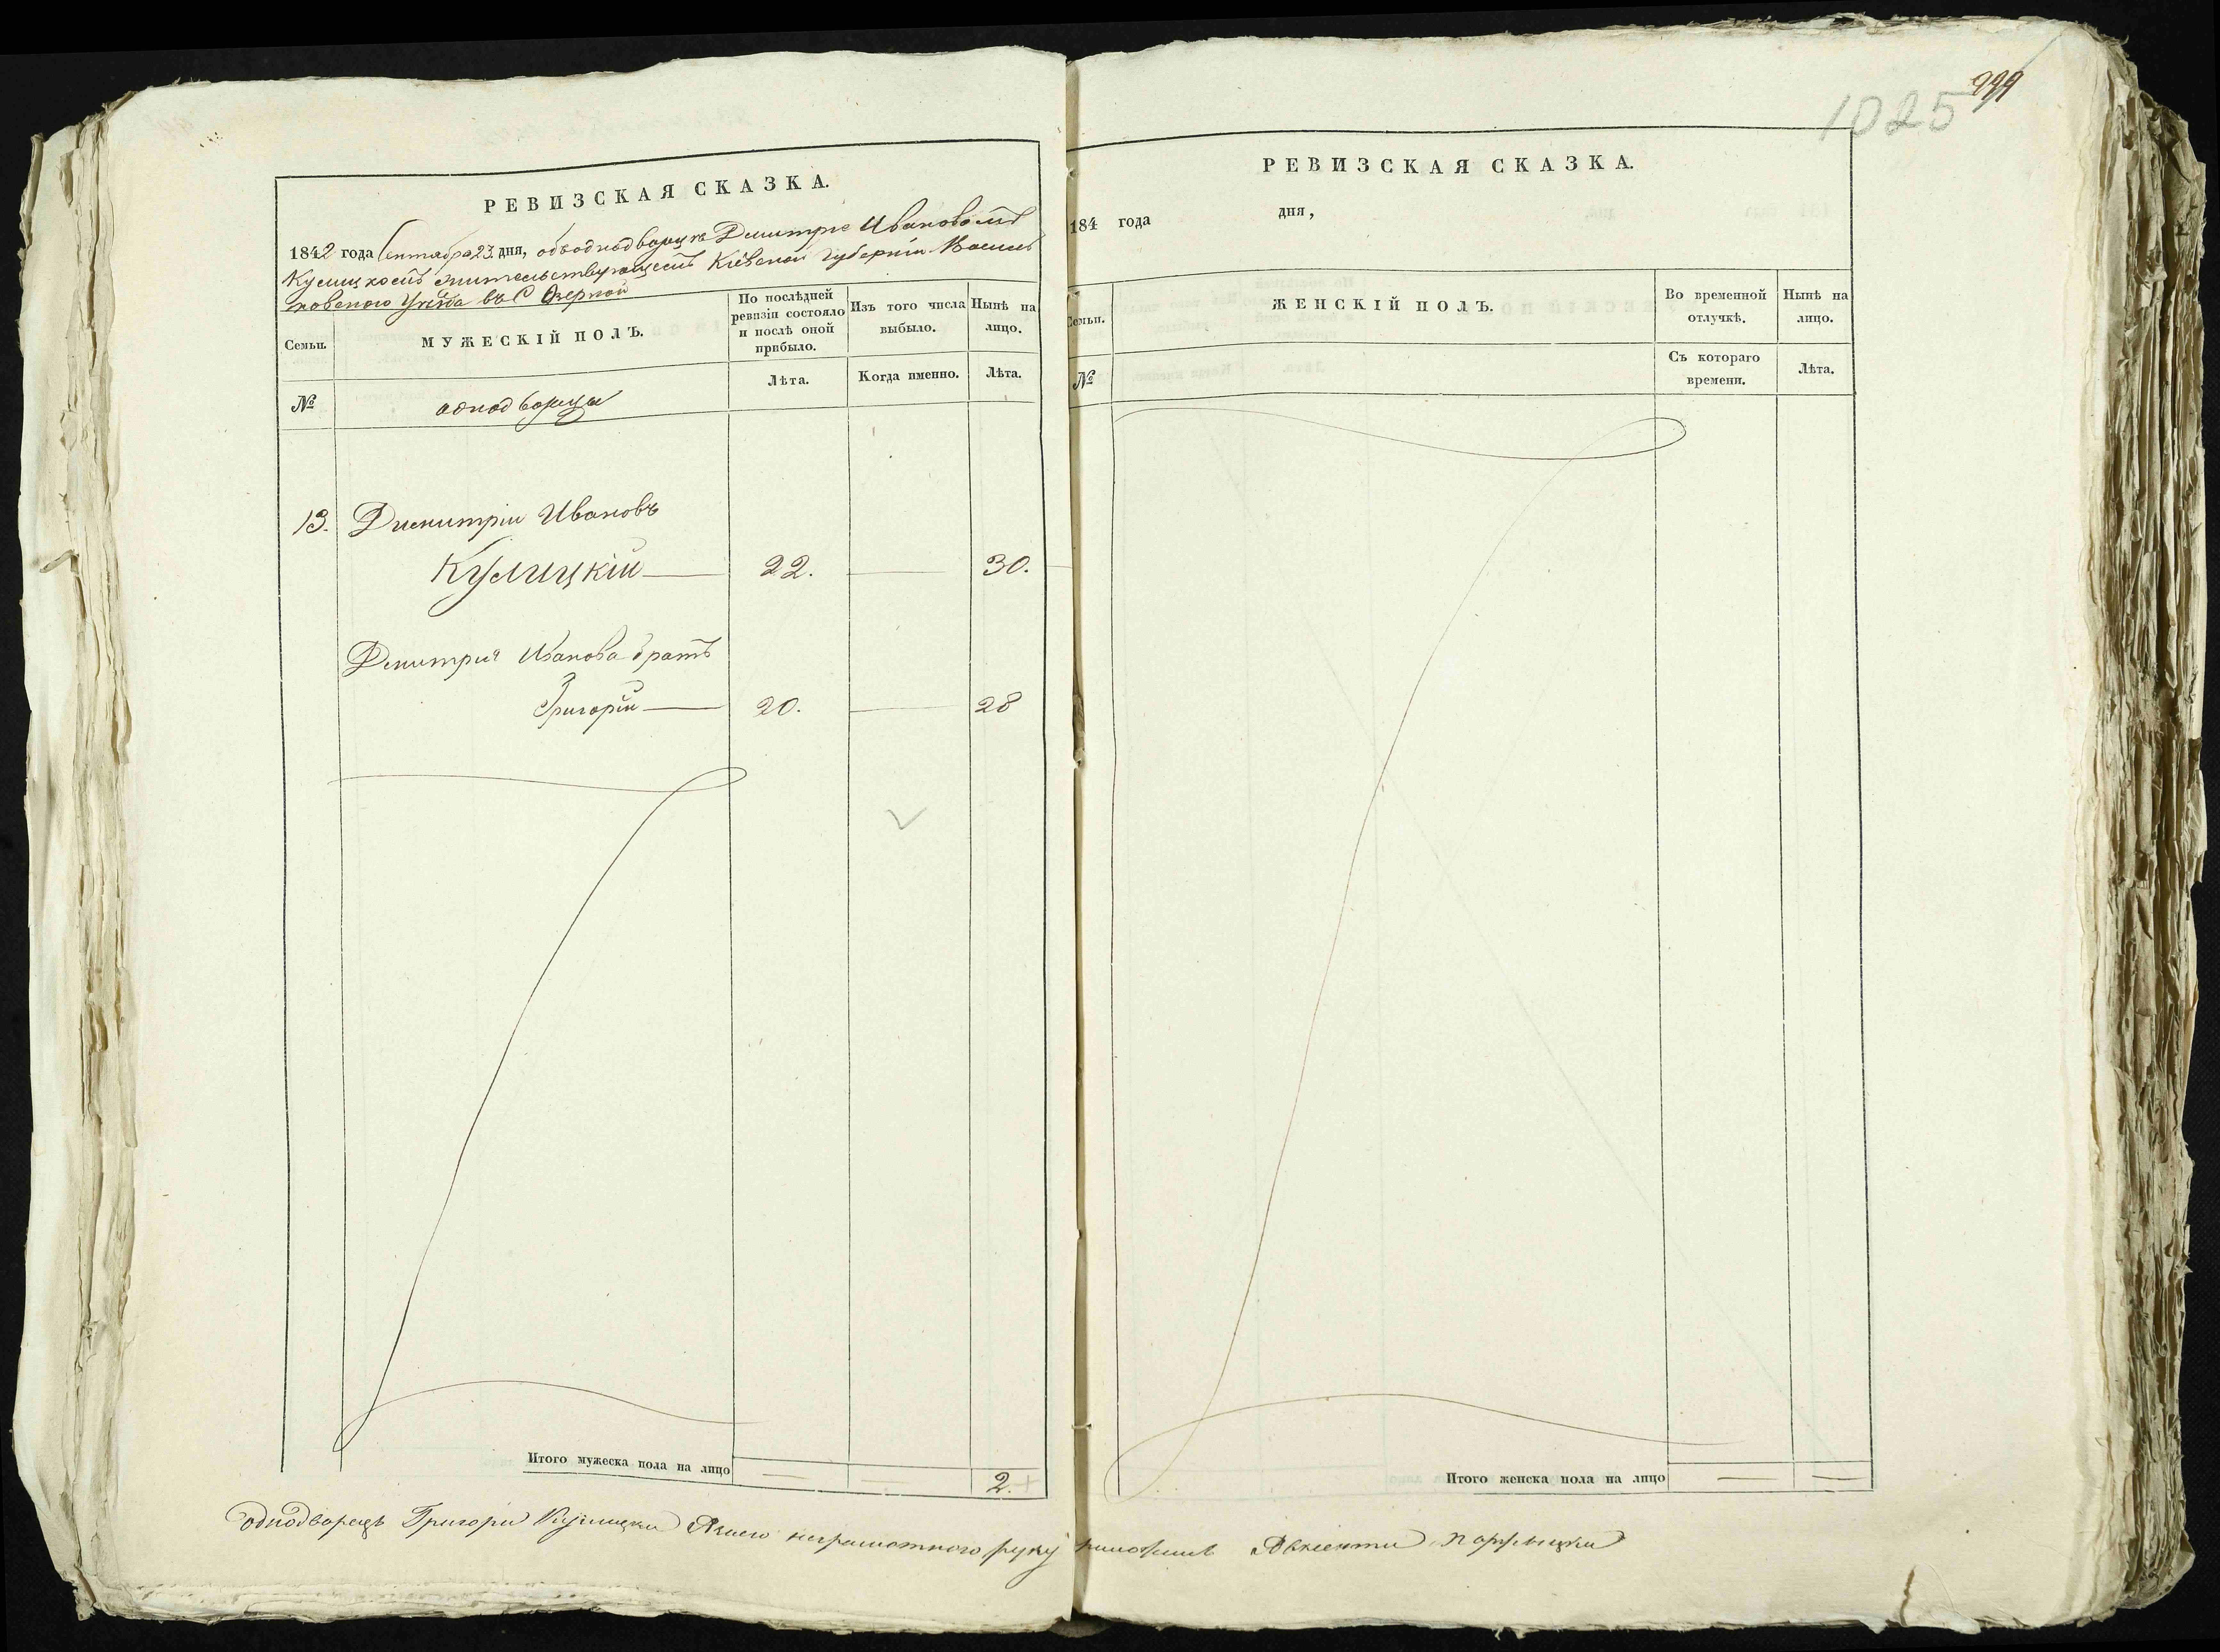 РЕВИЗСКАЯ СКАЗКА.
1842 года Сентября 23. дня, объ однодворцѣ Дмитріе Ивановомъ
Кулицкомъ жительствующемъ Кіевской Губерніи Василь
ковского Уѣзда въ С Озерной
Семьи.
МУЖЕСКІЙ ПОЛЪ.
По послѣдней
ревизіи состояло
и послѣ оной
прибыло.
Изъ того числа
выбыло.
Нынѣ на
лицо.
№
однодворцы
Лѣта.
Когда именно.
Лѣта.
13. Димитріи Ивановъ
Кулицкій — 22. — 30.
Дмитрия Иванова братъ
Григорій — 20. — 28
Итого мужеска пола на лицо — — 2.
299
1025
РЕВИЗСКАЯ СКАЗКА.
184 года дня,
Семьи.
ЖЕНСКІЙ ПОЛЪ.
Во временной
отлучкѣ.
Нынѣ на
лицо.
№
Съ котораго
времени.
Лѣта.
Итого женска пола на лицо — —
однодворецъ Григори Кулицки неграмотного руку